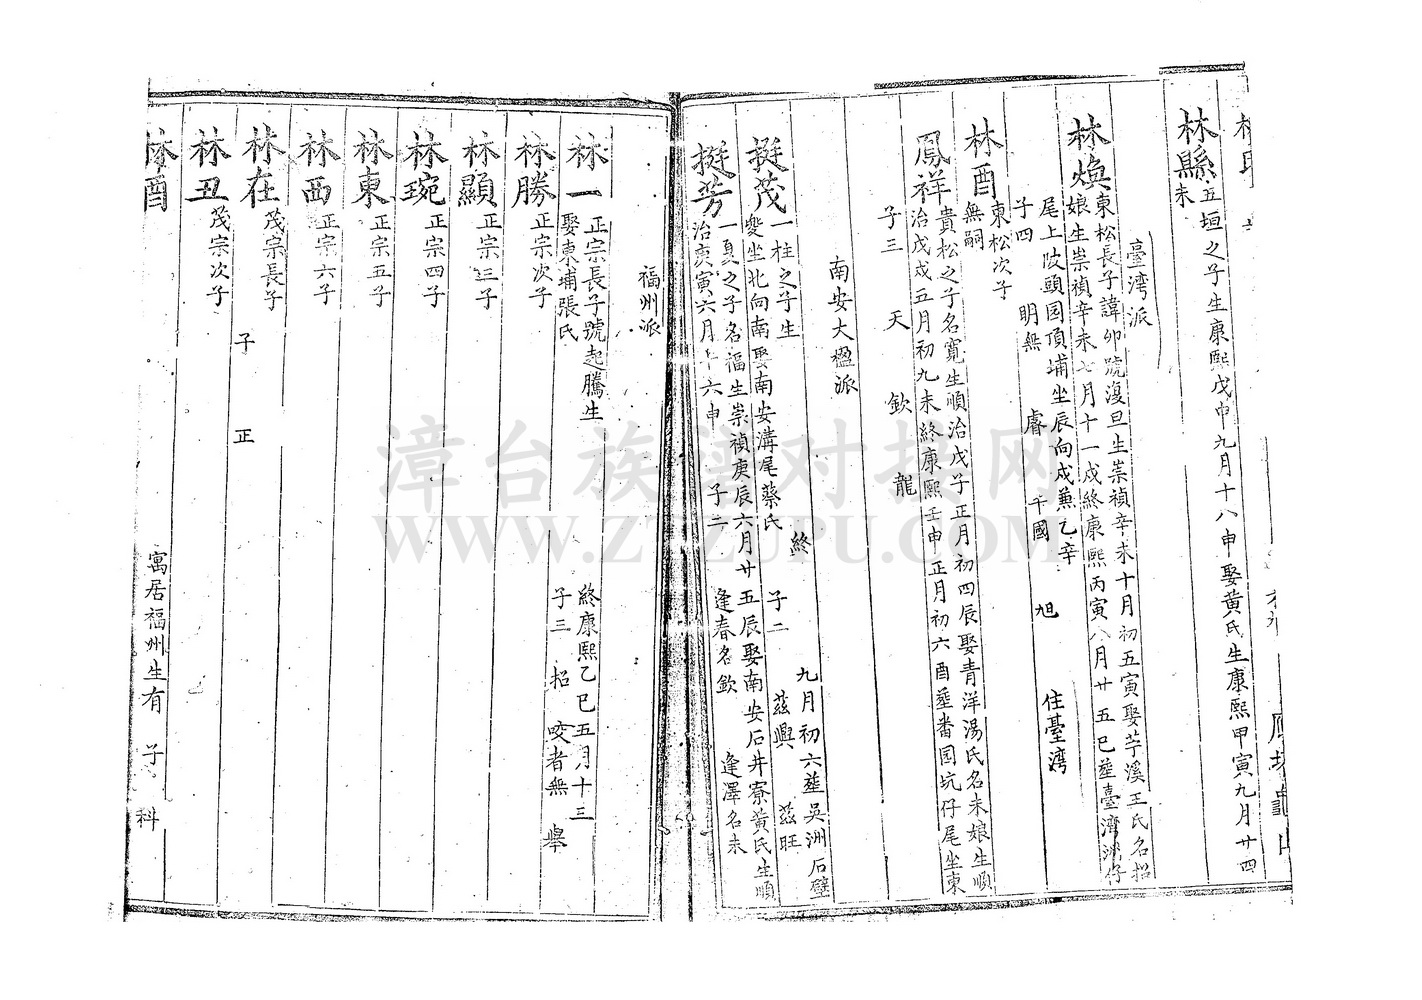 林縣 五垣之子生康熙戊申九月十八申娶黃氏生康熙甲寅九月廿四
未
臺灣派
林煥 東松長子諱卯號復旦生崇禎辛未十月初五寅娶芋溪王氏名招
娘生崇禎辛未七月十一戌終康熙丙寅八月廿五巳葬臺灣洲仔
尾上陂頭园頂埔坐辰向戍兼乙辛
子四 明無 睿 千國 旭 住臺灣
林酉 東松次子
無嗣
鳳祥 貴松之子名寬生順治戊子正月初四辰娶青洋湯氏名未娘生順
治戊戍五月初九未終康熙壬申正月初六酉葬畨园坑仔尾坐東
子三 天 欽 龍
南安大楹派
挺茂 一柱之子生 終 九月初六葬吳洲石壁
㘴坐北向南娶南安溝尾蔡氏 子二 茲興 茲旺
挺芳 一夏之子名福生崇禎庚辰六月廿五辰娶南安石井寮黃氏生順
治庚寅六月十六申 子二 逢春名欽 逢澤名未
福州派
林一 正宗長子號起騰生 終康熙乙巳五月十三
娶東埔張氏 子三 招 咬者無 舉
林勝 正宗次子
林顯 正宗三子
林琬 正宗四子
林東 正宗五子
林西 正宗六子
林在 茂宗長子
子 正
林丑 茂宗次子
林酉 寓居福州生有 子 科
漳台族谱对接网
WWW.ZTZUPU.COM